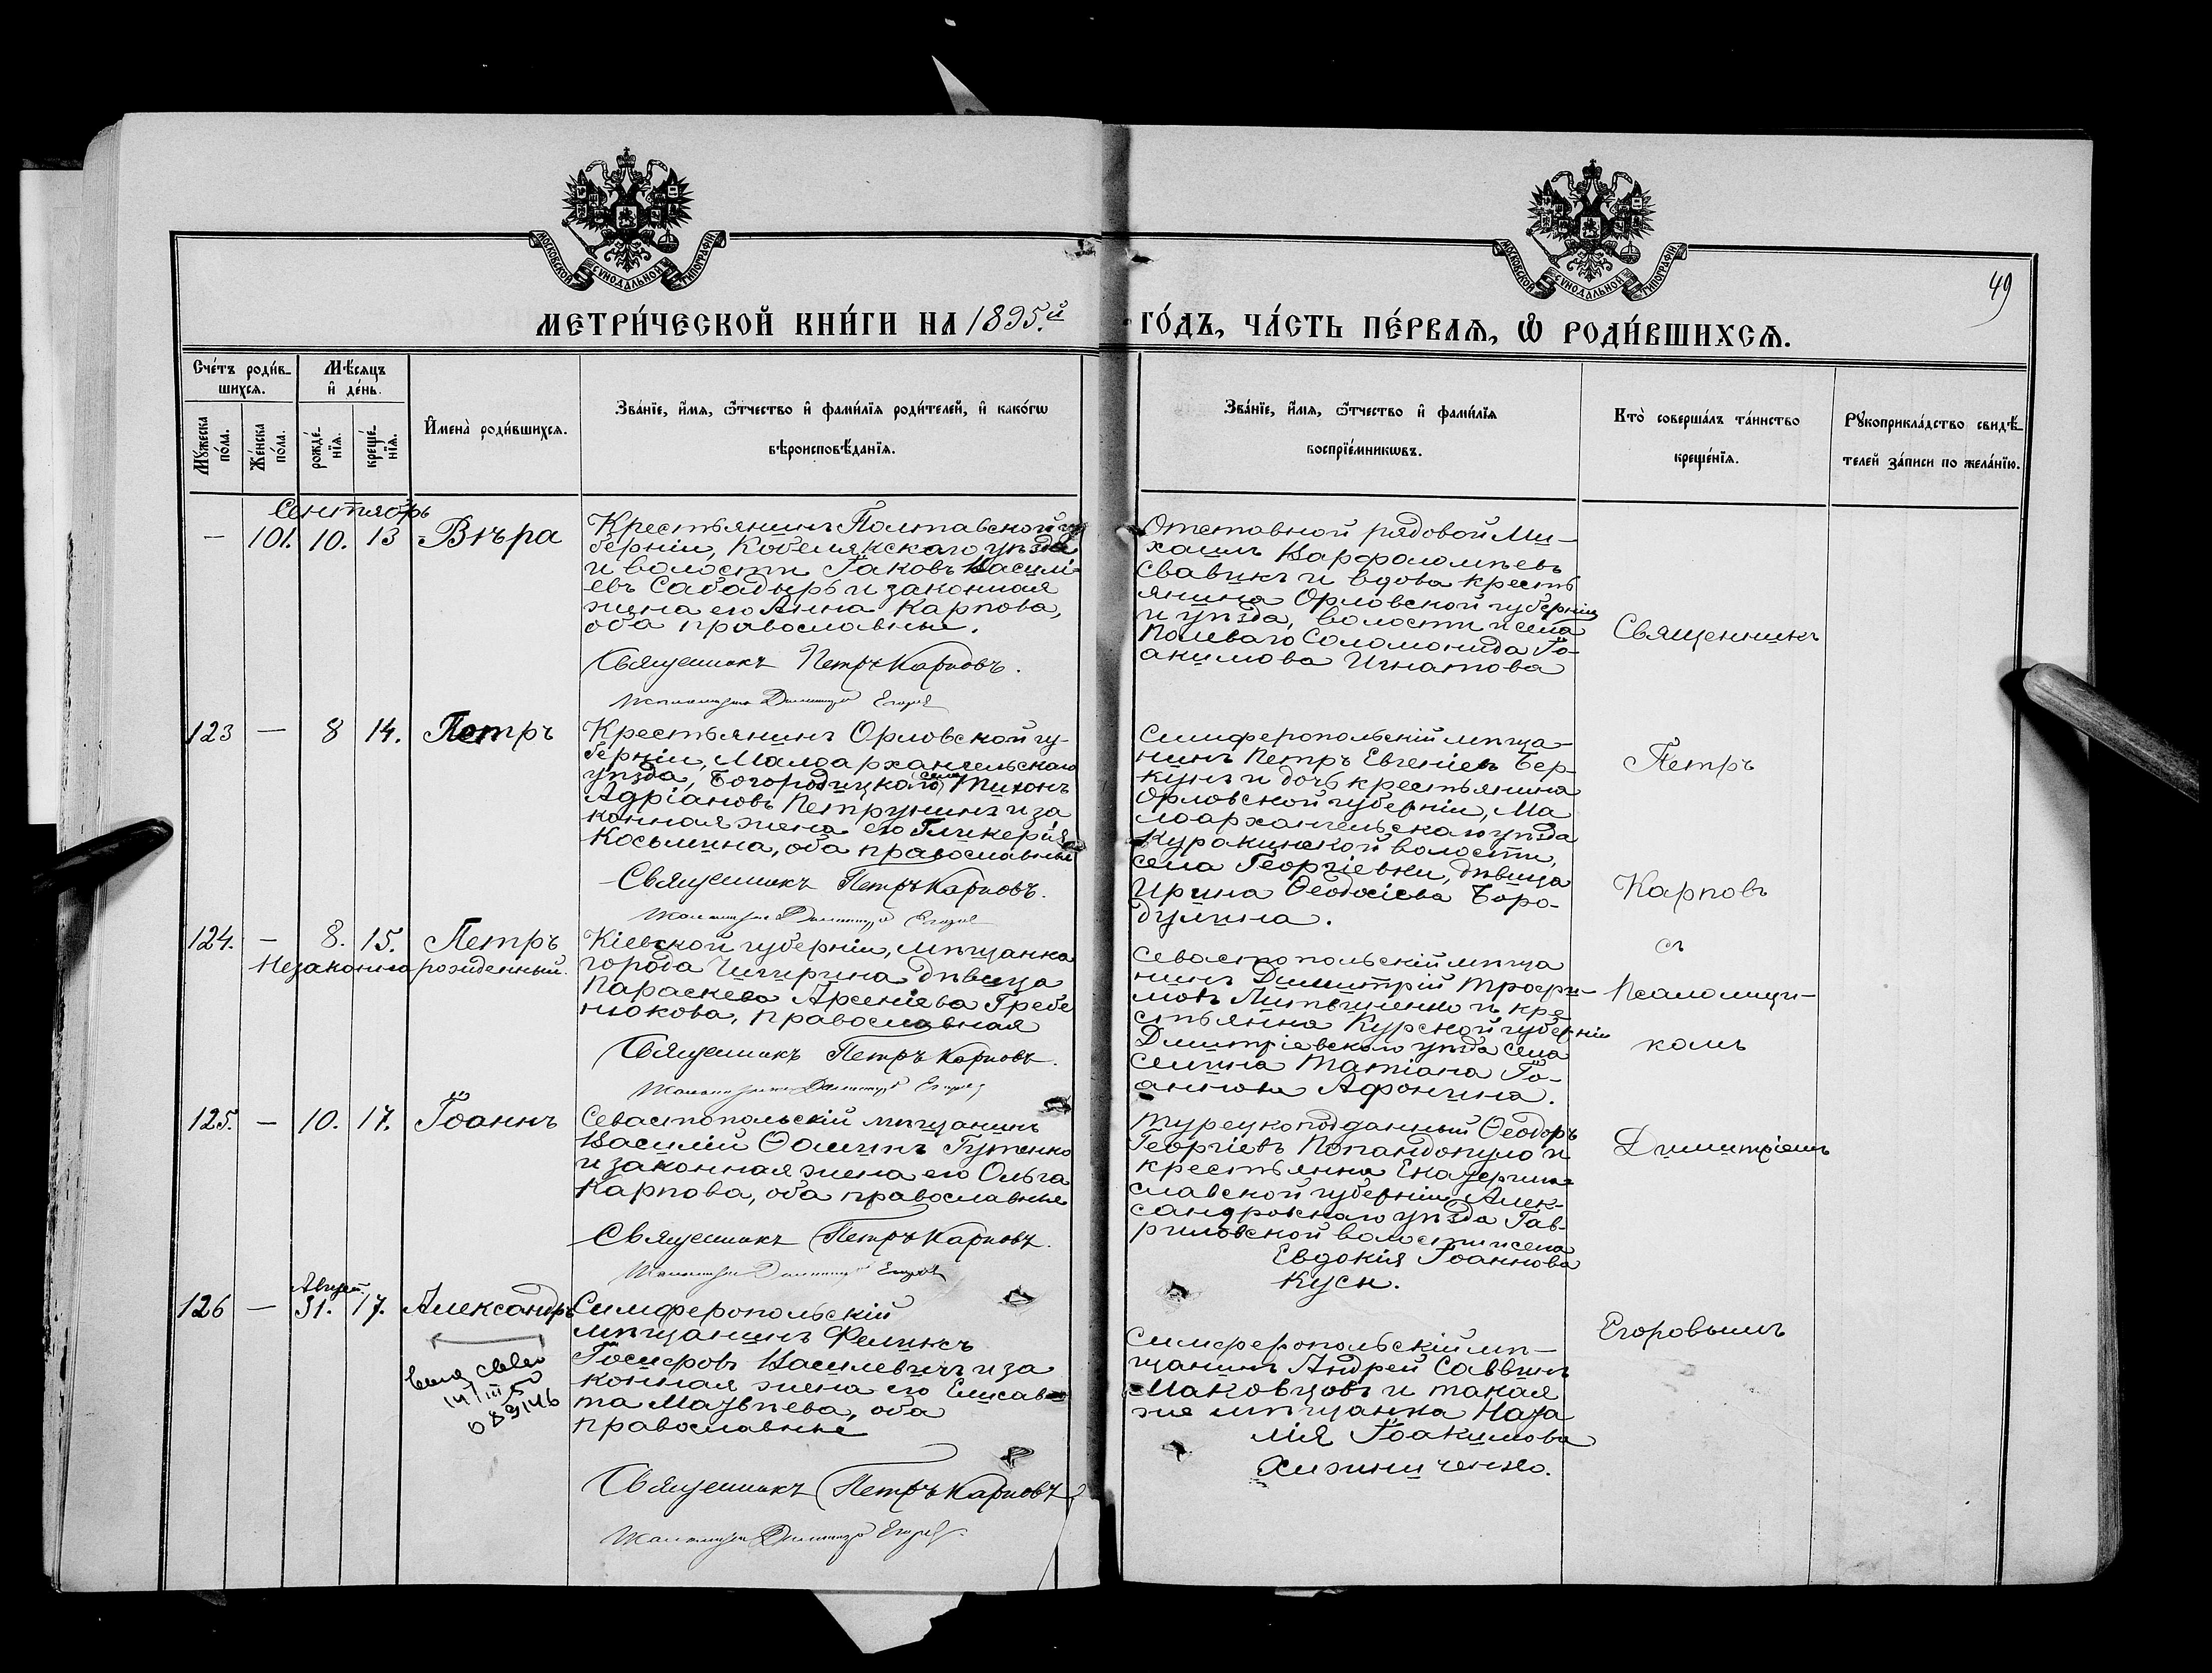 МОСКОВСКОЙ СУНОДАЛЬНОЙ ТИПОГРАФІИ
МОСКОВСКОЙ СУНОДАЛЬНОЙ ТИПОГРАФІИ
49
МЕТРИ́ЧЕСКОЙ КНИ́ГИ НА 1895.й
ГО́ДЪ, ЧА́СТЬ ПЕ́РВАѦ, Ѿ РОДИ́ВШИХСѦ.
Сче́тъ роди́в-
шихсѧ.
Мѣ́сѧцъ
и҆ де́нь.
Мꙋ́жеска
по́ла.
Же́нска
по́ла.
рожде́-
нїѧ.
креще́-
нїѧ.
И҆мена̀ роди́вшихсѧ.
Зва́нїе, и҆́мѧ, ѻ҆́тчество и҆ фами́лїѧ роди́телей, и҆ како́гѡ
вѣроисповѣ́данїѧ.
Зва́нїе, и҆́мѧ, ѻ҆́тчество и҆ фами́лїѧ
воспрїе́мникѡвъ.
Кто̀ соверша́лъ та́инство
креще́нїѧ.
Рꙋкоприкла́дство свидѣ́-
телей за́писи по жела́нїю.
Сентябрь
— 101. 10. 13 Вѣра
Крестьянинъ Полтавской гу
берніи, Кобелякскаго уѣзда
и волости Іаковъ Василі-
евъ Сабадырь и законная
жена его Анна Карпова,
оба православные.
Священникъ Петръ Карповъ.
Псаломщикъ Димитрій Егоровъ
Отставной рядовой Ми-
хаилъ Варфоломѣевъ
Свавикъ и вдова кресть
янина Орловской губерніи
и уѣзда, волости и села
Полеваго Соломонида Іо-
акимова Игнатова
Священникъ
123 — 8 14. Петръ
Крестьянинъ Орловской гу-
берніи, Малоархангельскаго
уѣзда, Богородицкаго села Тихонъ
Адріановъ Петрунинъ и за
конная жена его Гликерія
Косьмина, оба православные
Священникъ Петръ Карповъ.
Псаломщикъ Димитрій Егоровъ
Симферопольскій мѣща-
нинъ Петръ Евгеніевъ Бер-
кунъ и дочь крестьянина
Орловской губерніи, Ма
лоархангельскаго уѣзда
Куракинской волости,
села Георгіевки, дѣвица
Ирина Ѳеодосіева Боро-
дулина.
Петръ
Карповъ
124. — 8. 15. Петръ
Незаконнорожденный.
Кіевской губерніи, мѣщанка
города Чигирина дѣвица
Параскева Арсеніева Гребе
нюкова, православная
Священникъ Петръ Карповъ.
Псаломщикъ Димитрій Егоровъ
Севастопольскій мѣща
нинъ Димитрій Трофи-
мовъ Литвиненко и кре-
стьянка Курской губерніи
Димитріевскаго уѣзда села
Селина Татіана Іо-
аннова Афонина.
съ
Псаломщи-
комъ
125. — 10. 17. Іоаннъ
Севастопольскій мѣщанинъ
Василій Ѳоминъ Гутенко
и законная жена его Ольга
Карпова, оба православные
Священникъ Петръ Карповъ.
Псаломщикъ Димитрій Егоровъ
Турецкоподданный Ѳеодоръ
Георгіевъ Попандопуло и
крестьянка Екатерино
славской губерніи Алек-
сандровскаго уѣзда Гав-
риловской волости и села
Евдокія Іоаннова
Кусн.
Димитріемъ
Август.
126 — 31. 17. Александръ
Симферопольскій
мѣщанинъ Феликсъ
Іосифовъ Василевичъ и за
конная жена его Елисаве
та Матвѣева, оба
православные
Священникъ Петръ Карповъ
Псаломщикъ Димитрій Егоровъ.
Симферопольскій мѣ-
щанинъ Андрей Саввинъ
Маковцовъ и такая
же мѣщанка Ната
лія Іоакимова
Хижниченко.
Егоровымъ